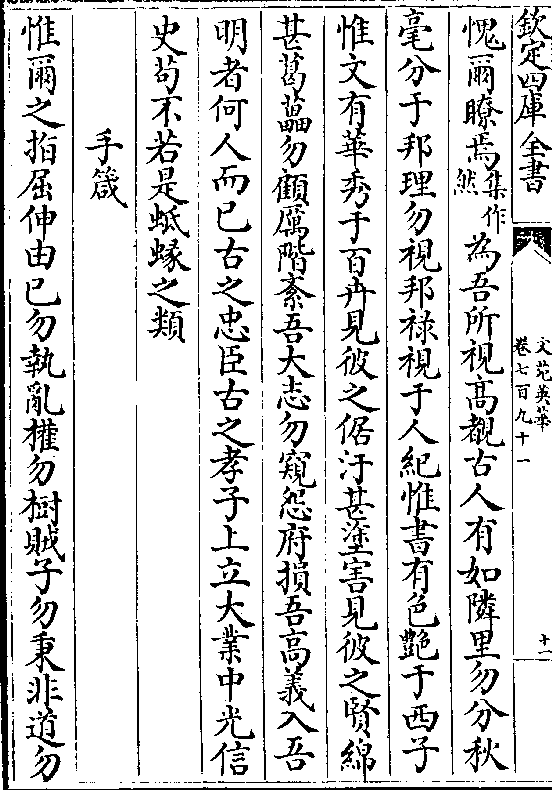 欽定四庫全書
文苑英華
卷七百九十一
十一
愧爾瞭焉集作然為吾所視髙覩古人有如隣里勿分秋
毫分于邦理勿視邦禄視于人紀惟書有色艶于西子
惟文有華秀于百卉見彼之倨汙甚塗害見彼之賢綿
甚葛藟勿顧厲階紊吾大志勿窺怨府損吾髙義入吾
明者何人而已古之忠臣古之孝子上立大業中光信
史苟不若是蚳蝝之類
手箴
惟爾之指屈伸由已勿執亂權勿樹賊子勿秉非道勿